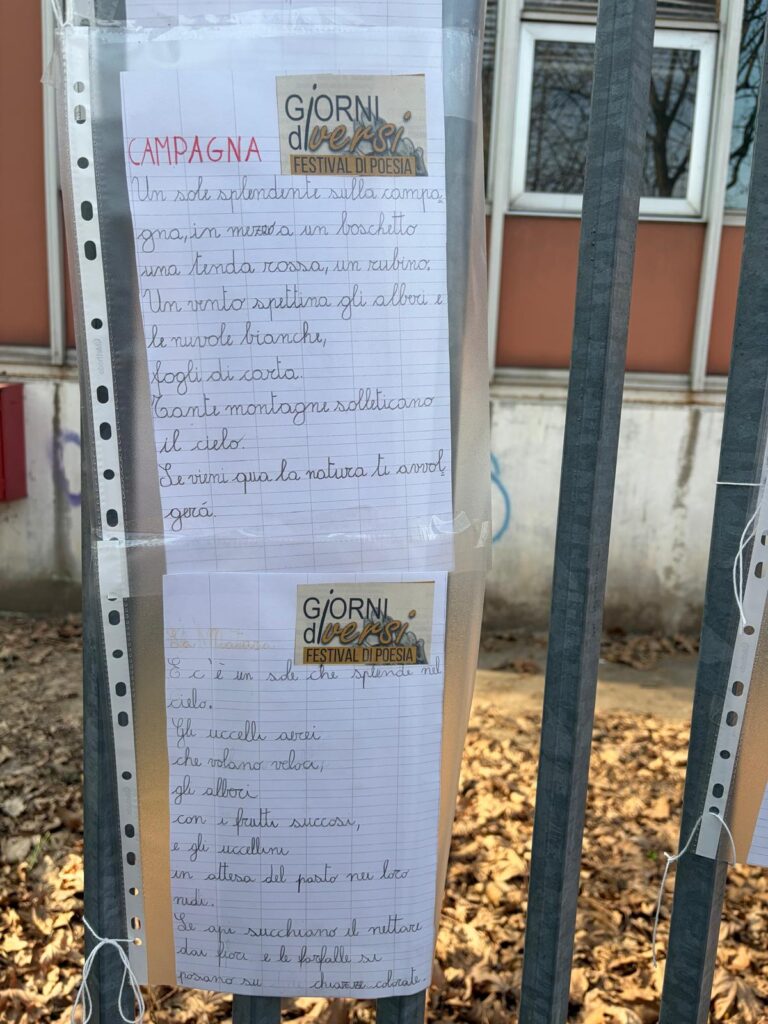 GiORNI
diversi
FESTIVAL DI POESIA
CAMPAGNA
Un sole splendente sulla campa-
gna, in mezzo a un boschetto
una tenda rossa, un rubino.
Un vento spettina gli alberi e
le nuvole bianche,
fogli di carta.
Tante montagne solleticano
il cielo.
Se vieni qua la natura ti avvol-
gerá.
GiORNI
diversi
FESTIVAL DI POESIA
E c'è un sole che splende nel
cielo.
Gli uccelli aerei
che volano veloci,
gli alberi
con i frutti succosi,
e gli uccellini
in attesa del pasto nei loro
nidi.
Le api succhiano il nettare
dai fiori e le farfalle si
posano su colorate.